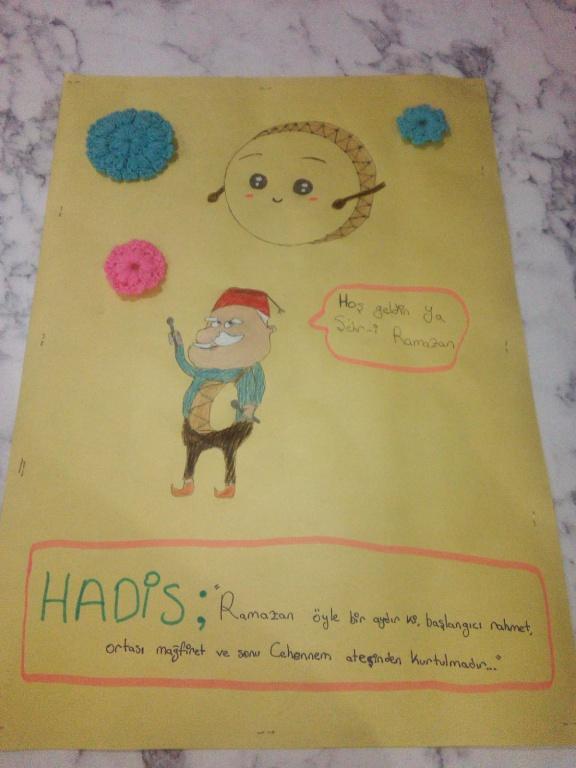 Hoş geldin ya
Şehr-i Ramazan
HADİS; "Ramazan öyle bir aydır ki, başlangıcı rahmet,
ortası mağfiret ve sonu Cehennem ateşinden kurtulmadır..."